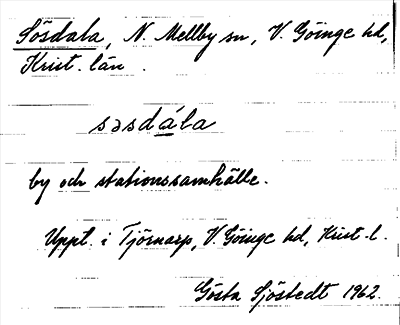 Sösdala, N. Mellby sn, V. Göinge hd,
Krist. län.
səsdála
by och stationssamhälle.
Uppt. i Tjörnarp, V. Göinge hd, Krist. l.
Gösta Sjöstedt 1962.